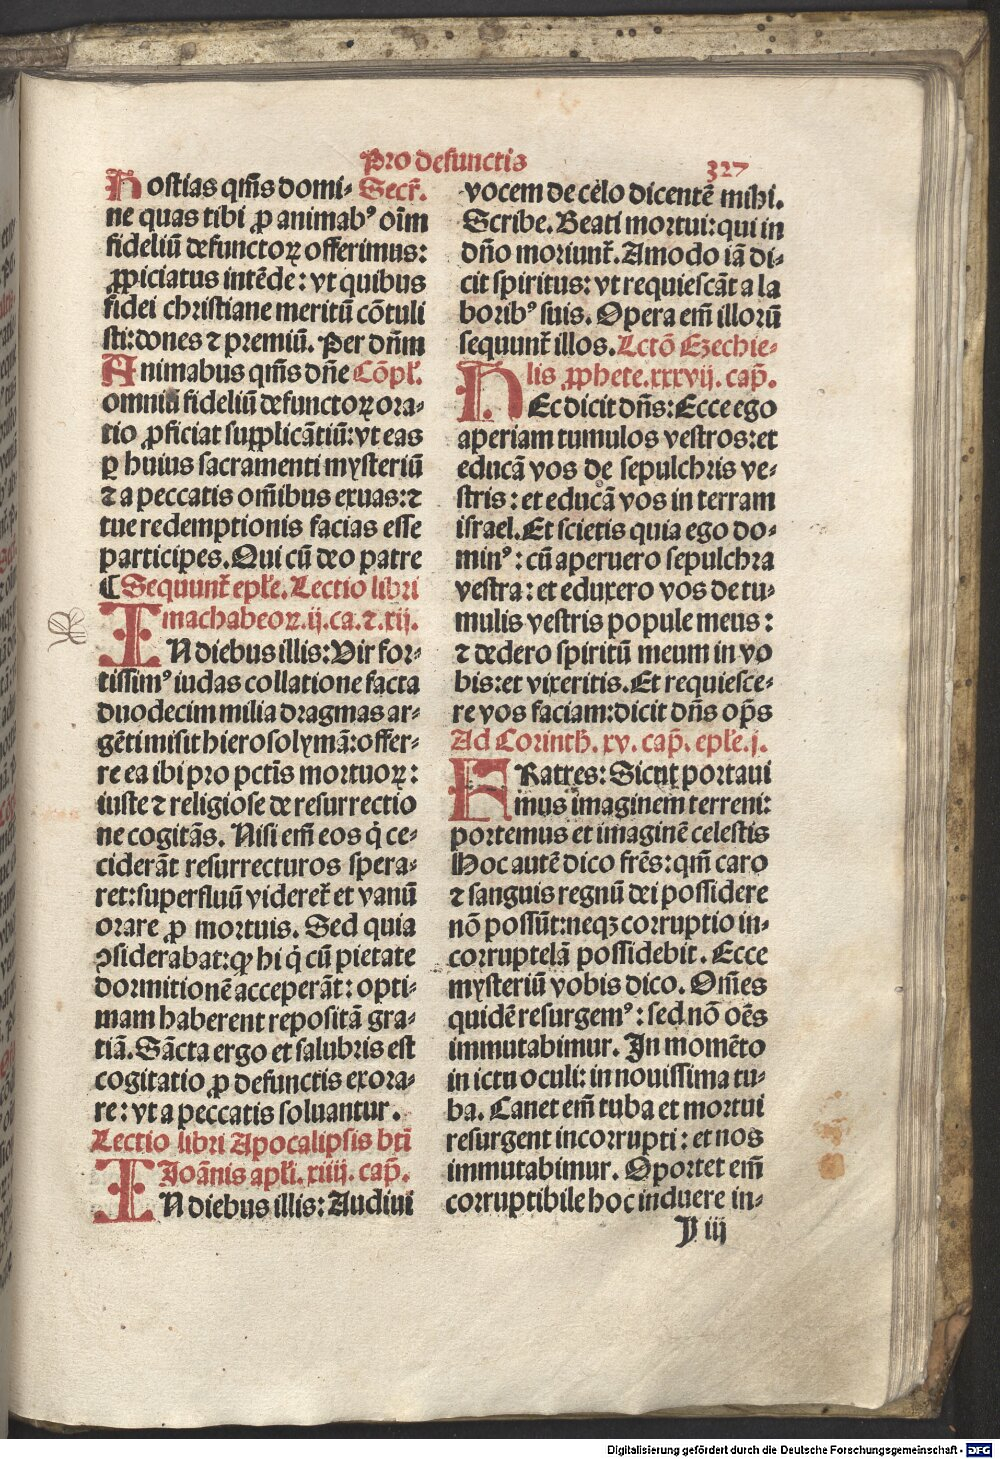 Pro defunctis 327
Hostias qm̄s domi- Secr̄.
ne quas tibi ꝓ animabꝰ oīm
fideliū defunctoꝝ offerimus:
ꝓpiciatus intēde: vt quibus
fidei christiane meritū cōtuli
sti: dones ⁊ premiū. Per dn̄m
Animabus qm̄s dn̄e Cōpl̄.
omniū fideliū defunctoꝝ ora-
tio ꝓficiat supplicātiū: vt eas
ꝑ huius sacramenti mysteriū
⁊ a peccatis om̄ibus exuas: ⁊
tue redemptionis facias esse
participes. Qui cū deo patre
¶ Sequunt̄ epl̄e. Lectio libri
machabeoꝝ. ij. ca. ⁊. xij.
IN diebus illis: Vir for-
tissimꝰ iudas collatione facta
duodecim milia dragmas ar-
gēti misit hierosolymā: offer-
re ea ibi pro pctīs mortuoꝝ:
iuste ⁊ religiose de resurrectio
ne cogitās. Nisi em̄ eos q̇ ce-
ciderāt resurrecturos spera-
ret: superfluū videret̄ et vanū
orare ꝓ mortuis. Sed quia
ꝯsiderabat: ꝙ hi q̇ cū pietate
dormitionē acceperāt: opti-
mam haberent repositā gra-
tiā. Sācta ergo et salubris est
cogitatio ꝓ defunctis exora-
re: vt a peccatis soluantur.
Lectio libri Apocalipsis btī
Joānis apl̄i. xiiij. cap̄.
IN diebus illis: Audiui
vocem de celo dicentē mihi.
Scribe. Beati mortui: qui in
dn̄o moriunt̄. Amodo iā di-
cit spiritus: vt requiescāt a la
boribꝰ suis. Opera em̄ illorū
sequunt̄ illos. Lctō Ezechie-
lis ꝓphete. xxxvij. cap̄.
HEc dicit dn̄s: Ecce ego
aperiam tumulos vestros: et
educā vos de sepulchris ve-
stris: et educā vos in terram
israel. Et scietis quia ego do-
minꝰ: cū aperuero sepulchra
vestra: et eduxero vos de tu-
mulis vestris popule meus:
⁊ dedero spiritū meum in vo
bis: et vixeritis. Et requiesce-
re vos faciam: dicit dn̄s op̄s
Ad Corinth. xv. cap̄. epl̄e. j.
FRatres: Sicut portaui
mus imaginem terreni:
portemus et imaginē celestis
Hoc autē dico frēs: qm̄ caro
⁊ sanguis regnū dei possidere
nō possūt: neqꝫ corruptio in-
corruptelā possidebit. Ecce
mysteriū vobis dico. Om̄es
quidē resurgemꝰ: sed nō oēs
immutabimur. In momēto
in ictu oculi: in nouissima tu-
ba. Canet em̄ tuba et mortui
resurgent incorrupti: et nos
immutabimur. Oportet em̄
corruptibile hoc induere in-
y iij
Digitalisierung gefördert durch die Deutsche Forschungsgemeinschaft - DFG